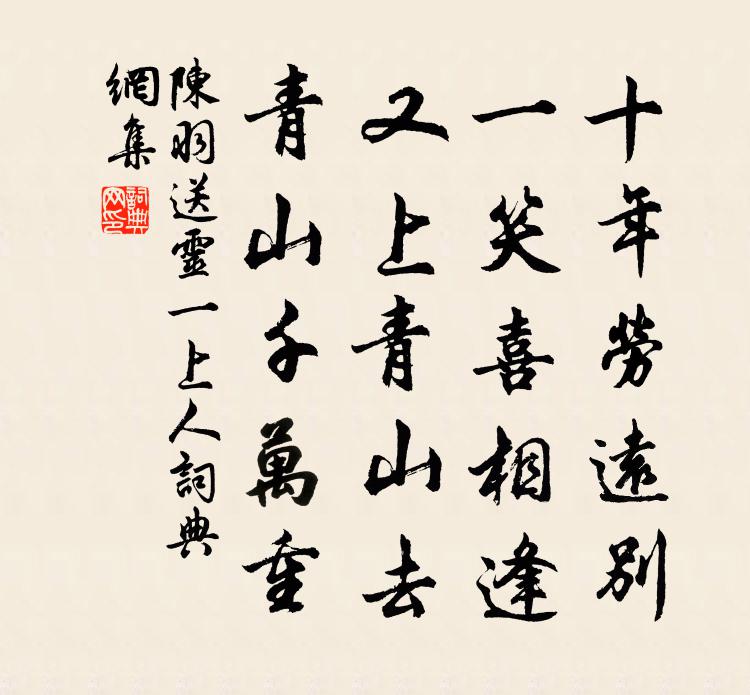 十年勞遠別
一笑喜相逢
又上青山去
青山千萬重
陳羽送靈一上人詞典
網集
詞典網印